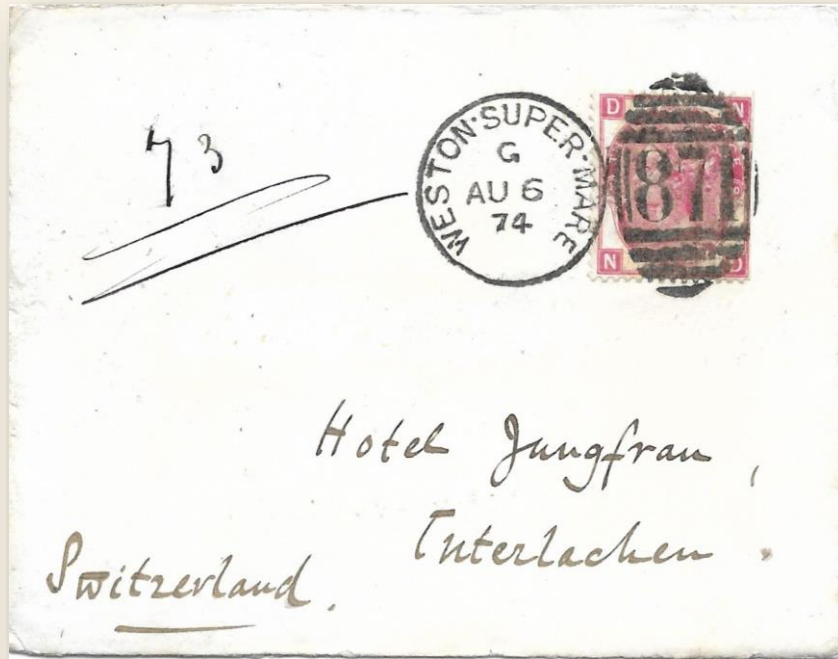 WESTON·SUPER·MARE
G
AU 6
74
D N
87
N D
73
Hotel Jungfrau,
Interlachen.
Switzerland.